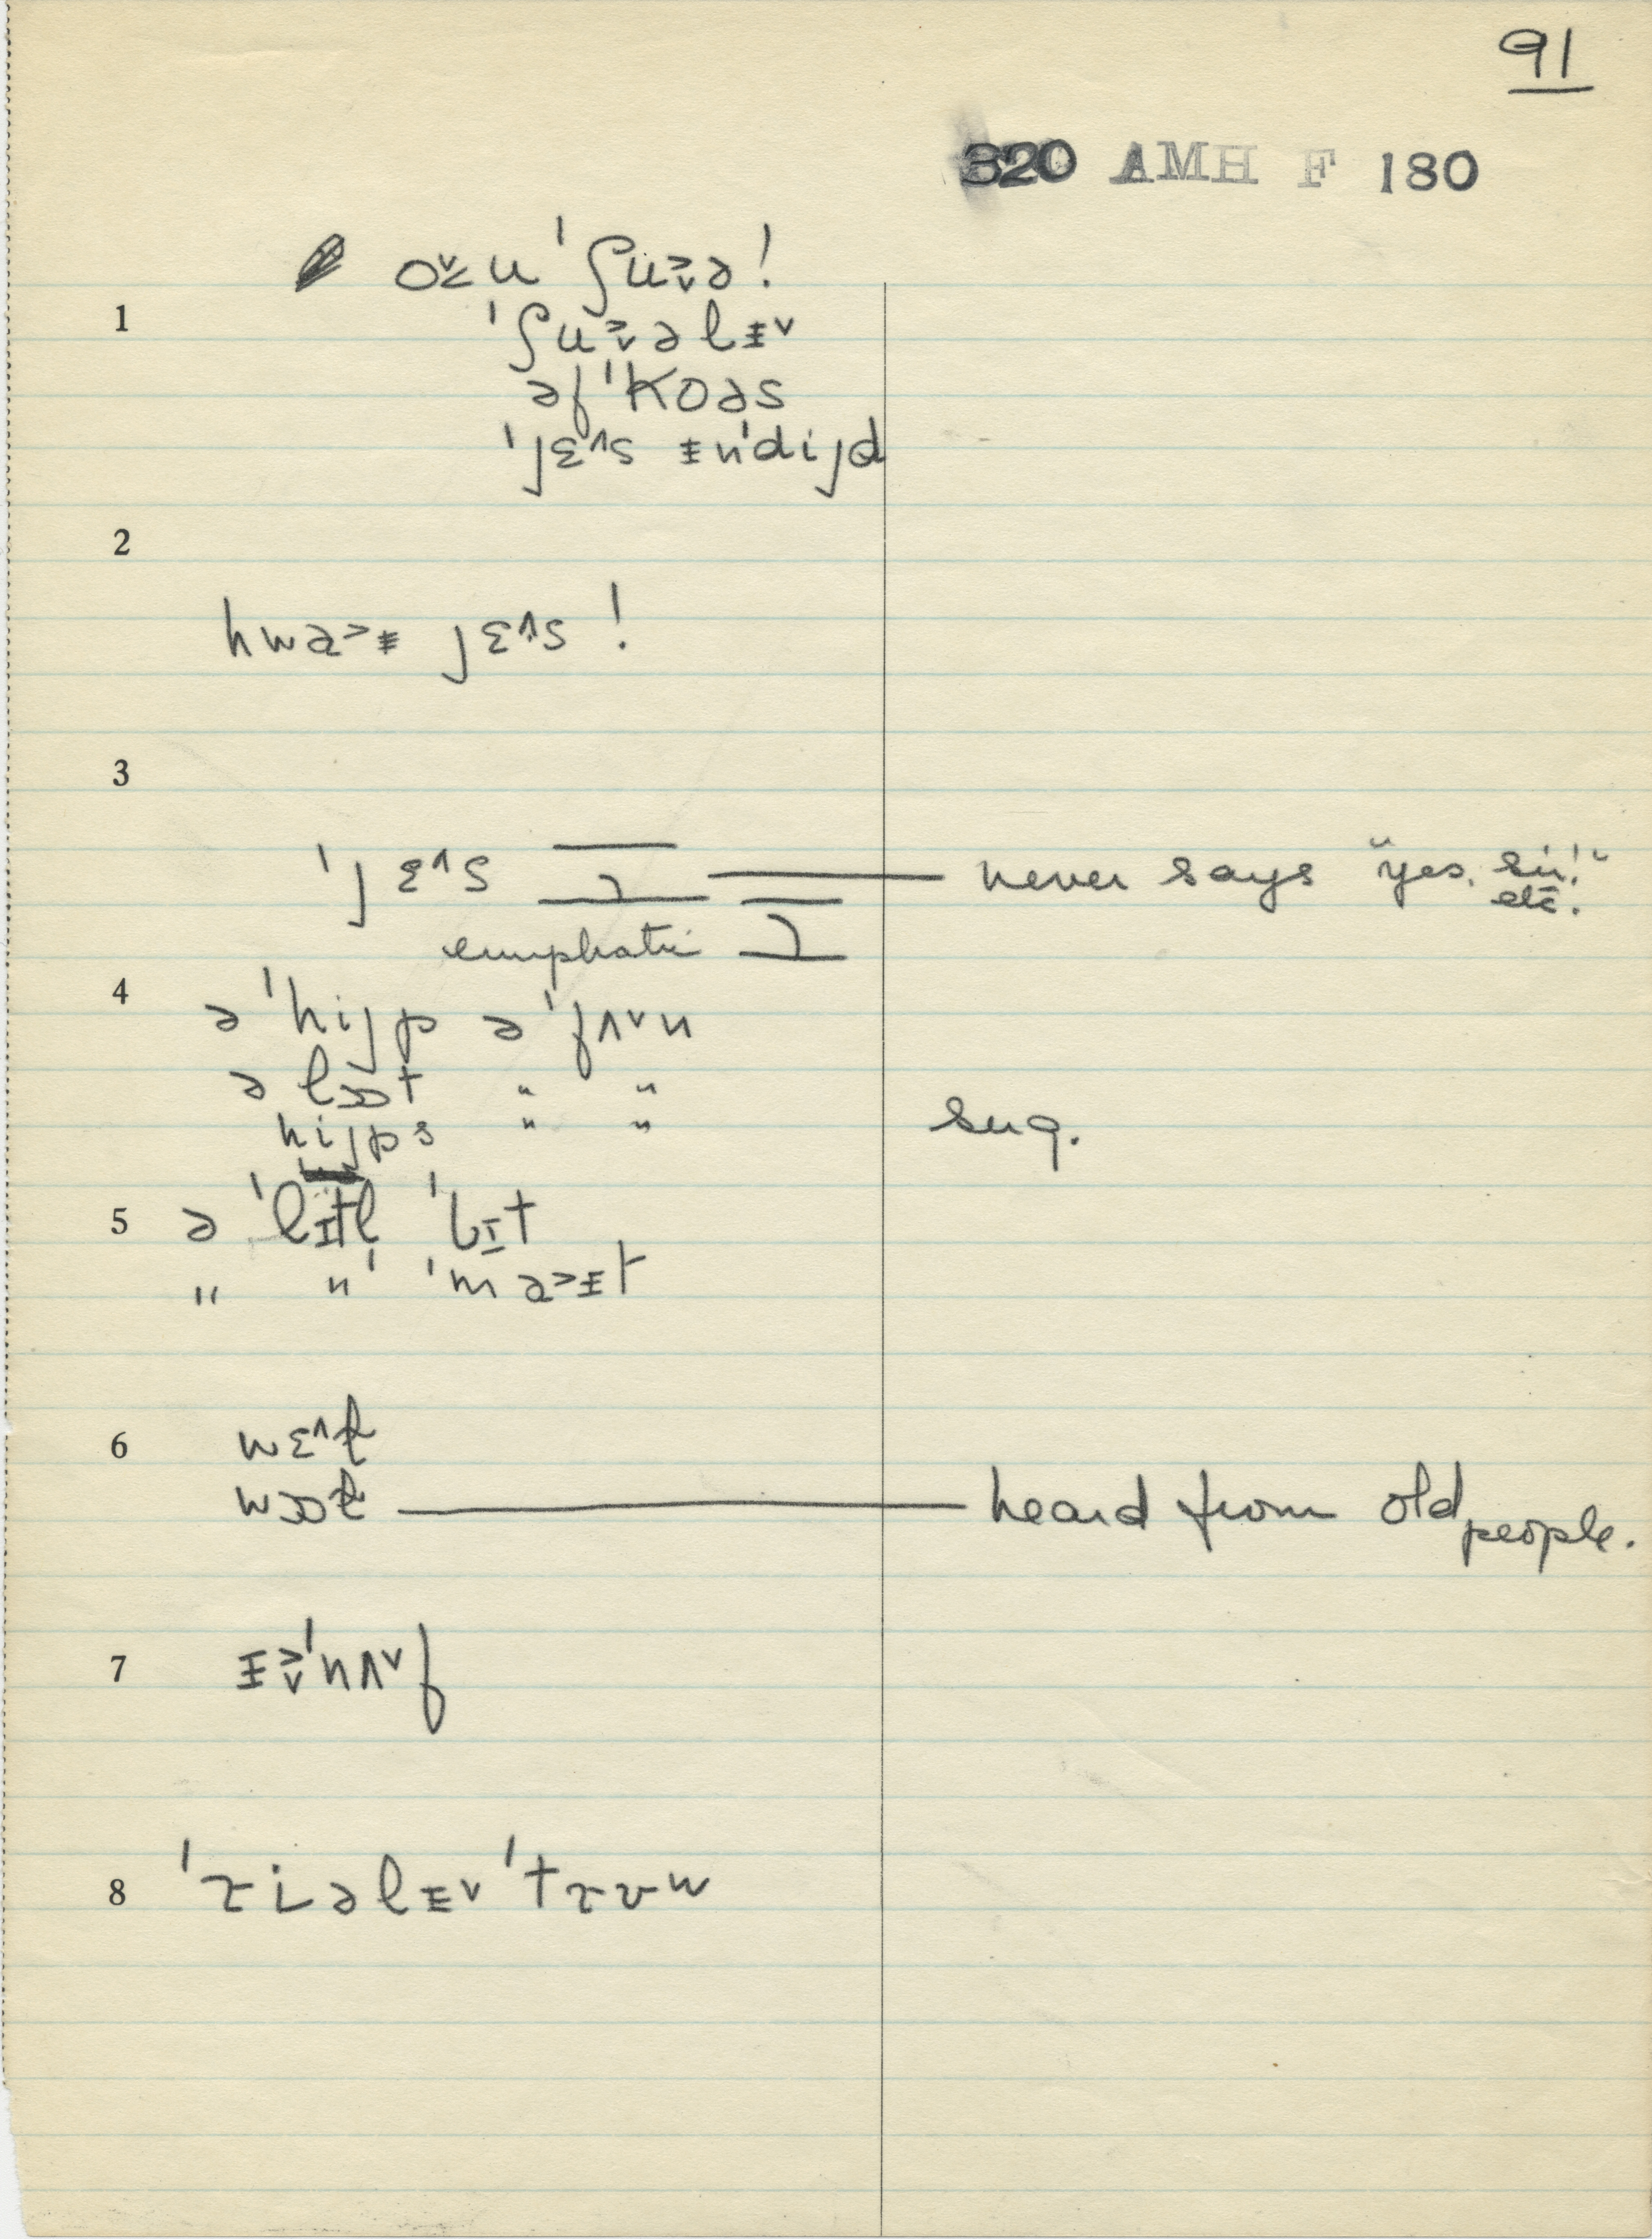 91
320 AMH F 180
oˬu ˈʃuˬə!
1
ˈʃuˬəlɨˬ
əfˈkoəs
ˈjɛ^s ɨnˈdijd
2
hwa>ɨ jɛ^s!
3
ˈjɛ^s never says "yes, sir!" etc.
emphatic
4
əˈhijp əˈfʌˬn
ə lɒt " "
hijps " " sug.
5 ə ˈlɪtl̩ ˈbɪt
" " ˈma>ɨt
6 wɛ^ɫ
wɒɫ heard from old people.
7 ɨˈnʌˬf
8 ˈriəlɨˬ ˈtɹʊu